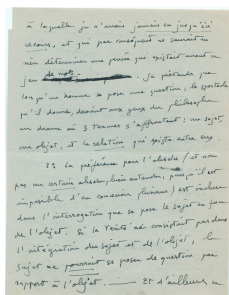 à laquelle je n'avais jamais eu jusqu'ici
recours, et qui par conséquent ne saurait en
rien déterminer une pensée qui existait avant ce
jeu de mots. Je prétends que
lorsqu'un homme se pose une question, le spectacle
qu'il donne, devant aux yeux du philosophe
un drame où 3 termes s'affrontent : un sujet,
un objet, et la relation qui existe entre eux.
La préférence pour l'absolu, (et non
pas un certain absolu, bien entendu, puisqu'il est
impossible d'en concevoir plusieurs) est incluse
dans l'interrogation que se pose le sujet en face
de l'objet. Si la vérité ne consistait pas dans
l'intégration du sujet et de l'objet, le
sujet ne pourrait se poser de question par
rapport à l'objet. — Et d'ailleurs, ce